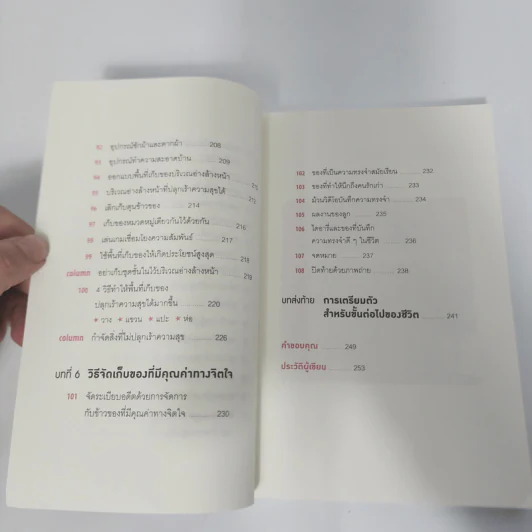 92 อุปกรณ์ซักผ้าและตากผ้า 208
93 อุปกรณ์ทำความสะอาดบ้าน 209
94 ออกแบบพื้นที่เก็บของบริเวณอ่างล้างหน้า
95 บริเวณอ่างล้างหน้าที่ปลุกเร้าความสุขได้
96 เลิกเก็บตุนข้าวของ 214
97 เก็บของหมวดหมู่เดียวกันไว้ด้วยกัน 216
98 เล่นเกมเชื่อมโยงความสัมพันธ์ 217
99 ใช้พื้นที่เก็บของให้เกิดประโยชน์สูงสุด 218
column อย่าเก็บชุดชั้นในไว้บริเวณอ่างล้างหน้า 219
100 4 วิธีทำให้พื้นที่เก็บของ
ปลุกเร้าความสุขได้มากขึ้น 220
วาง แขวน แปะ ห่อ
column กำจัดสิ่งที่ไม่ปลุกเร้าความสุข 226
บทที่ 6 วิธีจัดเก็บของที่มีคุณค่าทางจิตใจ
101 จัดระเบียบอดีตด้วยการจัดการ
กับข้าวของที่มีคุณค่าทางจิตใจ 230
102 ของที่เป็นความทรงจำสมัยเรียน 232
103 ของที่ทำให้นึกถึงคนรักเก่า 233
104 ม้วนวิดีโอบันทึกความทรงจำ 234
105 ผลงานของลูก 235
106 ไดอารี่และของที่บันทึก
ความทรงจำดี ๆ ในชีวิต 236
107 จดหมาย 237
108 ปิดท้ายด้วยภาพถ่าย 238
บทส่งท้าย การเตรียมตัว
สำหรับขั้นต่อไปของชีวิต 241
คำขอบคุณ 249
ประวัติผู้เขียน 253